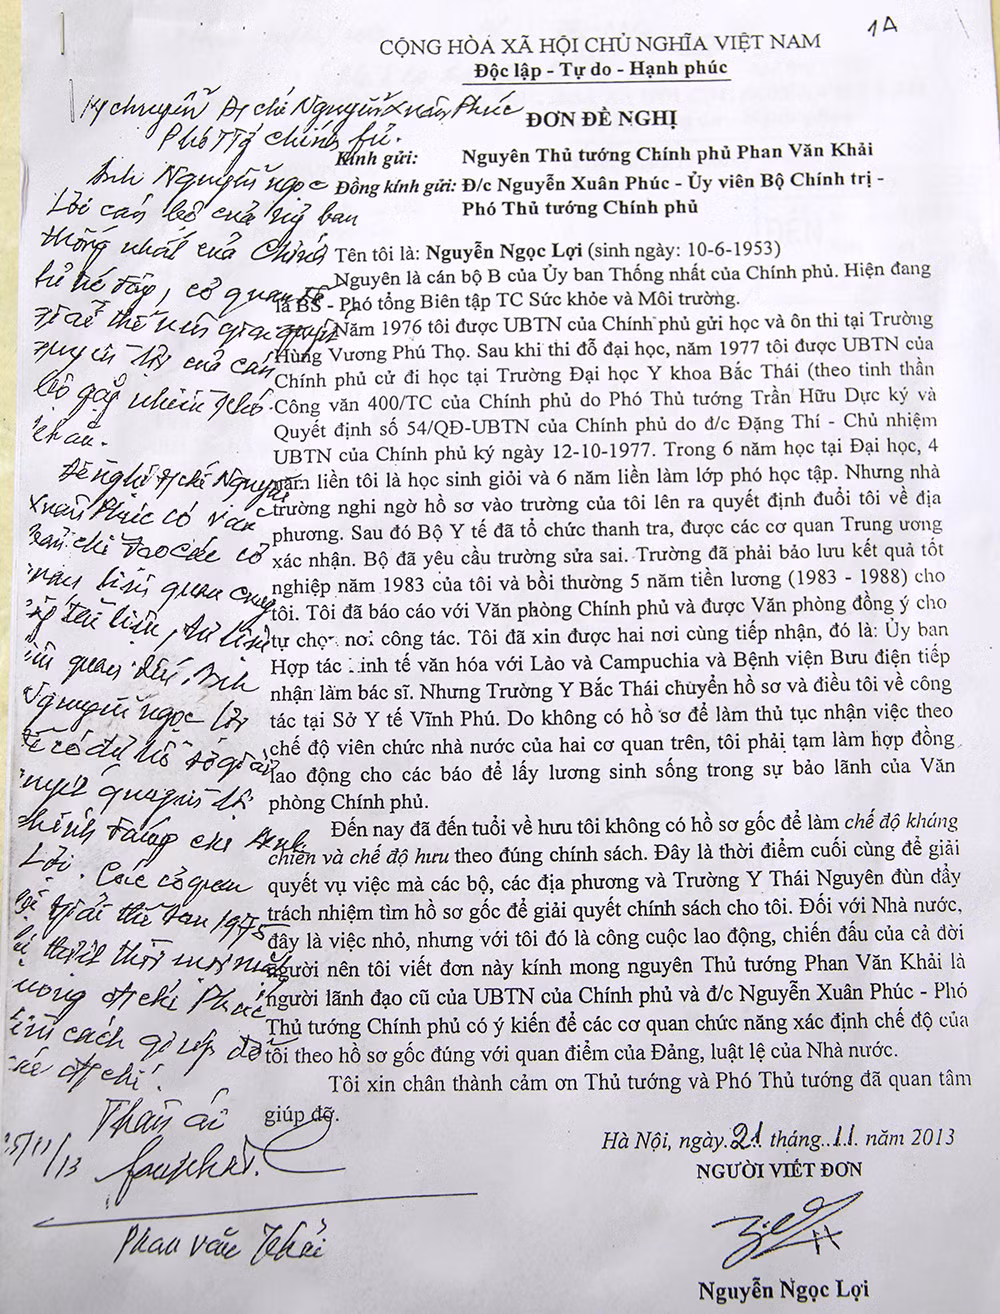 1A
CỘNG HÒA XÃ HỘI CHỦ NGHĨA VIỆT NAM
Độc lập - Tự do - Hạnh phúc
ĐƠN ĐỀ NGHỊ
Kính gửi: Nguyên Thủ tướng Chính phủ Phan Văn Khải
Đồng kính gửi: Đ/c Nguyễn Xuân Phúc - Ủy viên Bộ Chính trị -
Phó Thủ tướng Chính phủ
Tên tôi là: Nguyễn Ngọc Lợi (sinh ngày: 10-6-1953)
Nguyên là cán bộ B của Ủy ban Thống nhất của Chính phủ. Hiện đang
là BS - Phó tổng Biên tập TC Sức khỏe và Môi trường.
Năm 1976 tôi được UBTN của Chính phủ gửi học và ôn thi tại Trường
Hùng Vương Phú Thọ. Sau khi thi đỗ đại học, năm 1977 tôi được UBTN của
Chính phủ cử đi học tại Trường Đại học Y khoa Bắc Thái (theo tinh thần
Công văn 400/TC của Chính phủ do Phó Thủ tướng Trần Hữu Dực ký và
Quyết định số 54/QĐ-UBTN của Chính phủ do đ/c Đặng Thí - Chủ nhiệm
UBTN của Chính phủ ký ngày 12-10-1977. Trong 6 năm học tại Đại học, 4
năm liền tôi là học sinh giỏi và 6 năm liền làm lớp phó học tập. Nhưng nhà
trường nghi ngờ hồ sơ vào trường của tôi lên ra quyết định đuổi tôi về địa
phương. Sau đó Bộ Y tế đã tổ chức thanh tra, được các cơ quan Trung ương
xác nhận. Bộ đã yêu cầu trường sửa sai. Trường đã phải bảo lưu kết quả tốt
nghiệp năm 1983 của tôi và bồi thường 5 năm tiền lương (1983 - 1988) cho
tôi. Tôi đã báo cáo với Văn phòng Chính phủ và được Văn phòng đồng ý cho
tự chọn nơi công tác. Tôi đã xin được hai nơi cùng tiếp nhận, đó là: Ủy ban
Hợp tác kinh tế văn hóa với Lào và Campuchia và Bệnh viện Bưu điện tiếp
nhận làm bác sĩ. Nhưng Trường Y Bắc Thái chuyển hồ sơ và điều tôi về công
tác tại Sở Y tế Vĩnh Phú. Do không có hồ sơ để làm thủ tục nhận việc theo
chế độ viên chức nhà nước của hai cơ quan trên, tôi phải tạm làm hợp đồng
lao động cho các báo để lấy lương sinh sống trong sự bảo lãnh của Văn
phòng Chính phủ.
Đến nay đã đến tuổi về hưu tôi không có hồ sơ gốc để làm chế độ kháng
chiến và chế độ hưu theo đúng chính sách. Đây là thời điểm cuối cùng để giải
quyết vụ việc mà các bộ, các địa phương và Trường Y Thái Nguyên đùn đẩy
trách nhiệm tìm hồ sơ gốc để giải quyết chính sách cho tôi. Đối với Nhà nước,
đây là việc nhỏ, nhưng với tôi đó là công cuộc lao động, chiến đấu của cả đời
người nên tôi viết đơn này kính mong nguyên Thủ tướng Phan Văn Khải là
người lãnh đạo cũ của UBTN của Chính phủ và đ/c Nguyễn Xuân Phúc - Phó
Thủ tướng Chính phủ có ý kiến để các cơ quan chức năng xác định chế độ của
tôi theo hồ sơ gốc đúng với quan điểm của Đảng, luật lệ của Nhà nước.
Tôi xin chân thành cảm ơn Thủ tướng và Phó Thủ tướng đã quan tâm
giúp đỡ.
Hà Nội, ngày 21 tháng 11 năm 2013
NGƯỜI VIẾT ĐƠN
Nguyễn Ngọc Lợi
chuyển Đ chí Nguyễn Xuân Phúc
Phó TTg Chính fủ.
Anh Nguyễn Ngọc
Lợi cán bộ của uỷ ban
thống nhất của Chính
fủ cơ quan
giải thể nên giải quyết
quyền lợi của cán
bộ gặp nhiều khó
khăn.
Đề nghị đ chí Nguyễn
Xuân Phúc có văn
bản chỉ đạo các cơ
quan liên quan cung
cấp tài liệu, tư liệu
liên quan đến Anh
Nguyễn Ngọc Lợi
để có đủ hồ sơ giải
quyết
chính đáng cho Anh
Lợi. Các cơ quan
giải thể sau 1975
đ chí Phúc
tìm cách giúp đỡ
các đ chí.
Thân ái
25/11/13
Phan Văn Khải